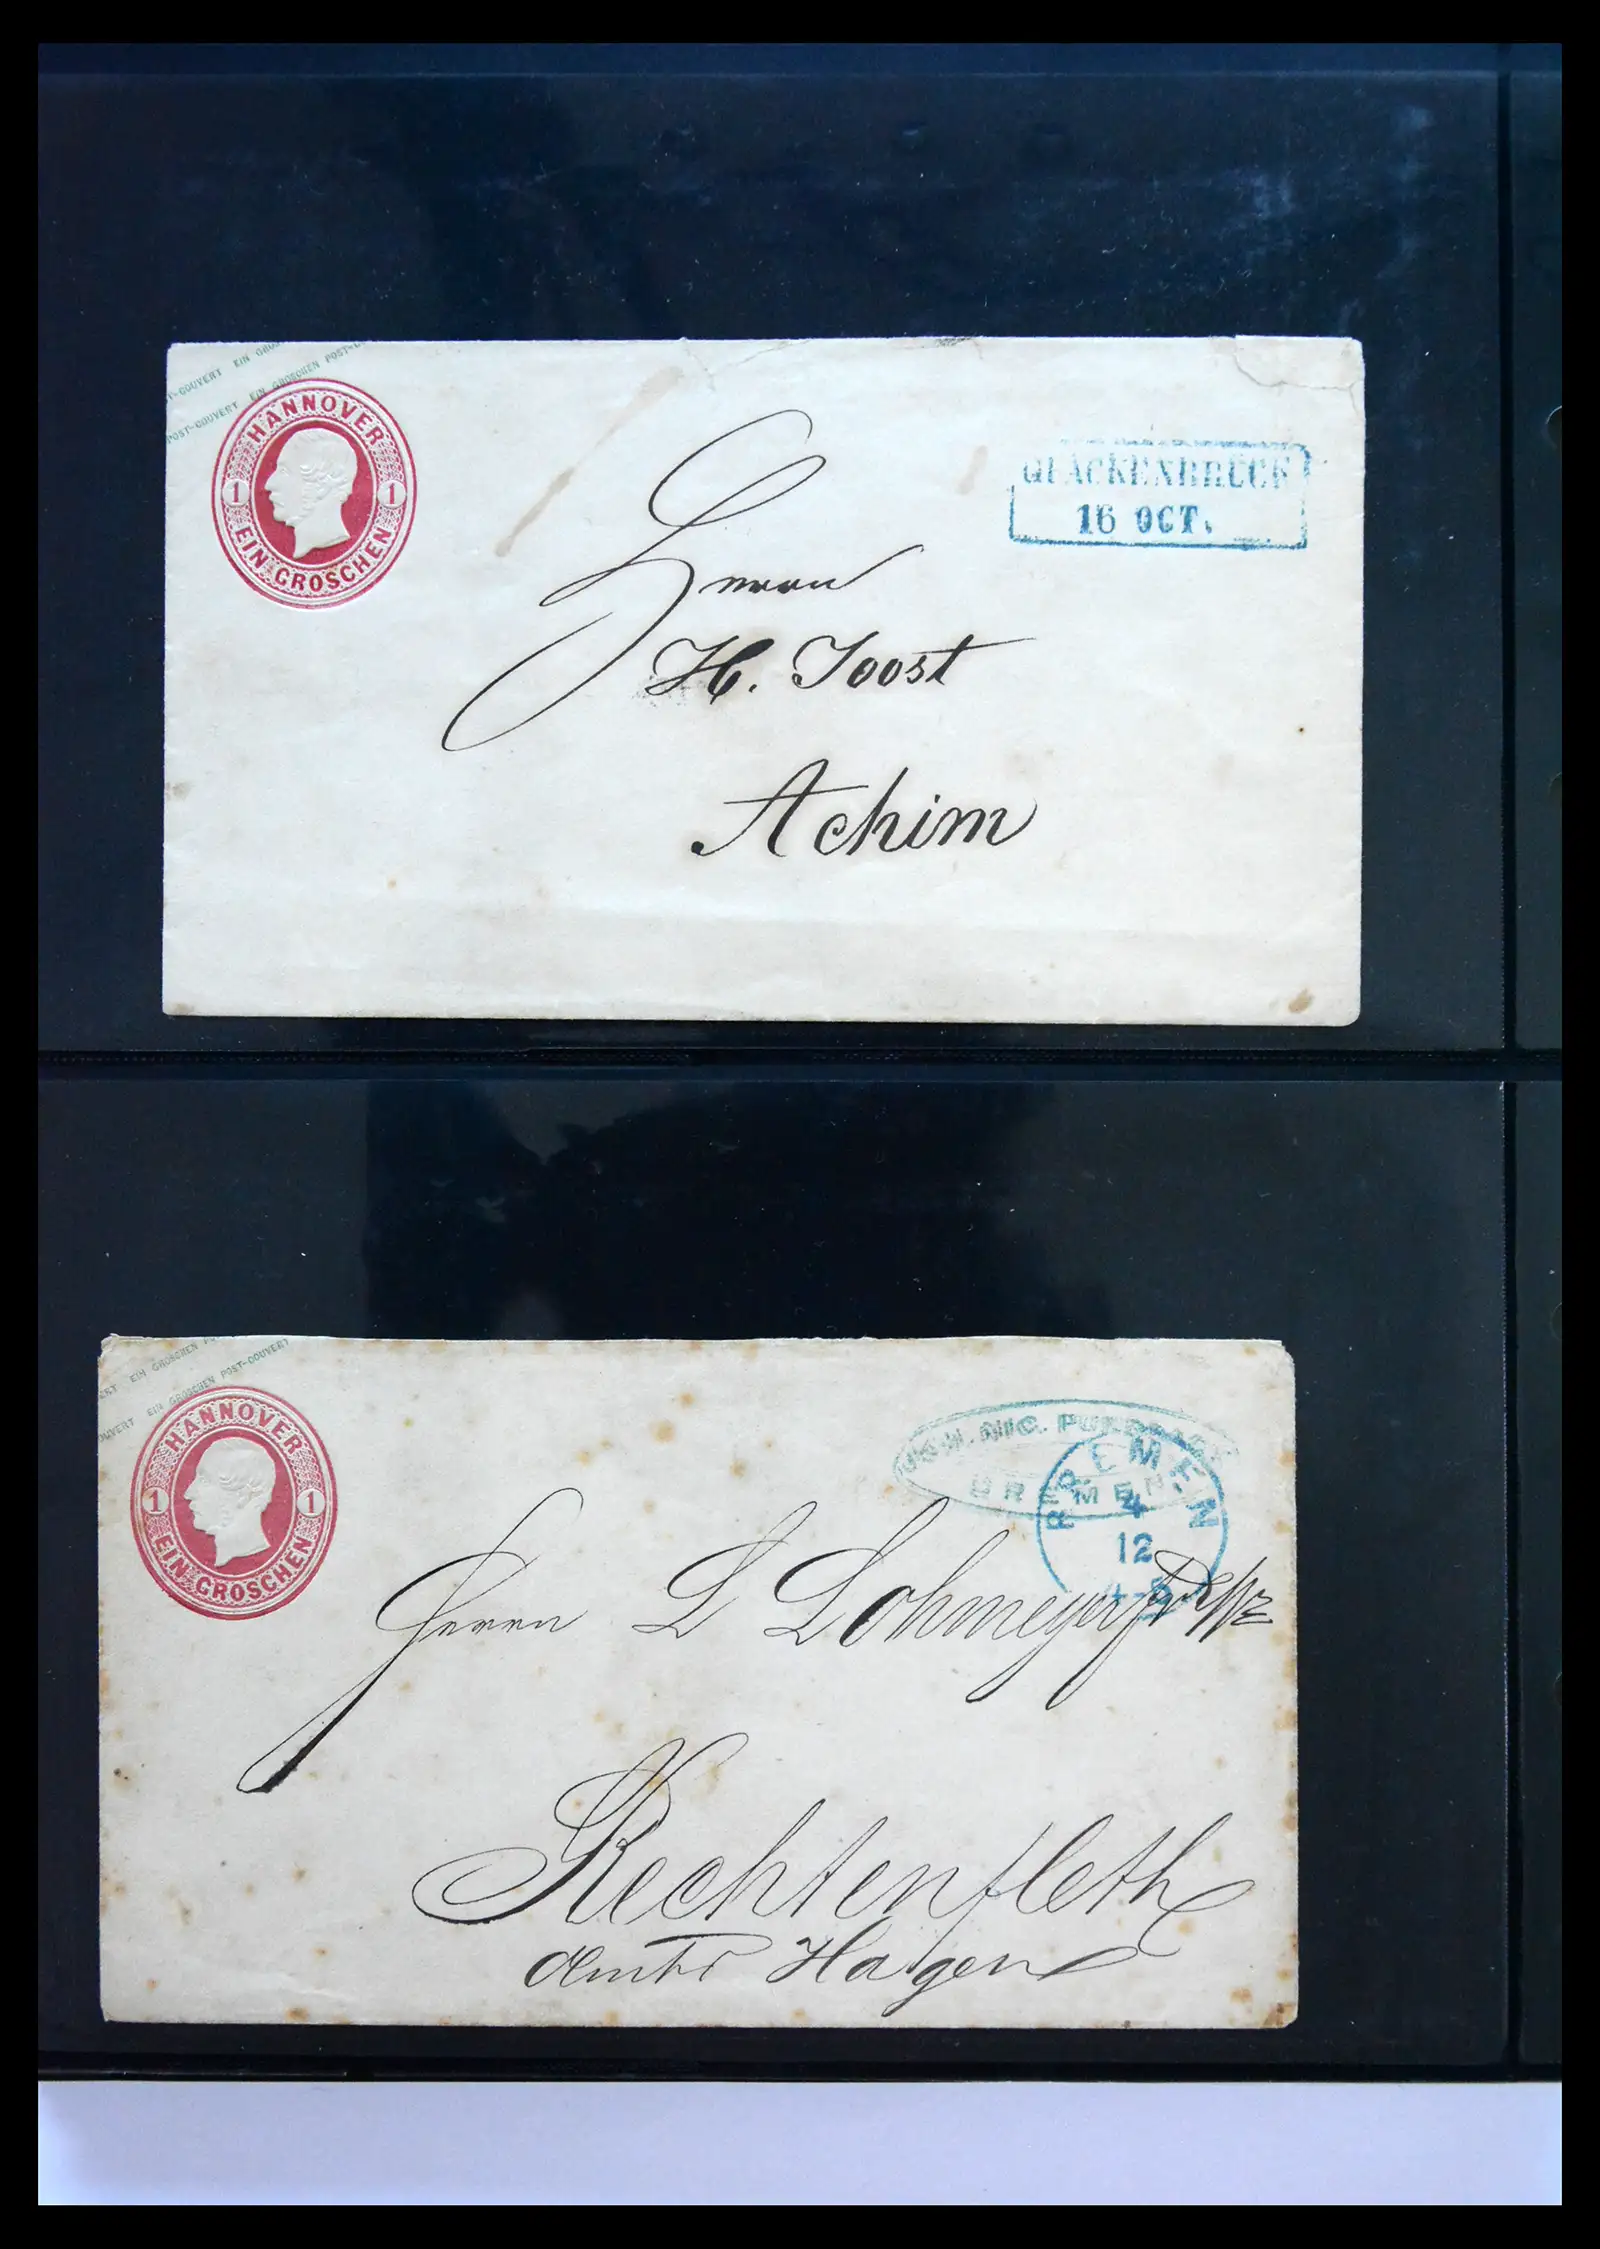 POST-COUVERT EIN
POST-COUVERT EIN GROSCHEN POST-
HANNOVER
1 1
EIN GROSCHEN
QUACKENBRÜCK
16 OCT.
Herrn
H. Joost
Achim
EIN GROSCHEN
EIN GROSCHEN POST-COUVERT
HANNOVER
1 1
EIN GROSCHEN
JOH. NIC.
BREMEN
BREMEN
4
12
4-5
Herrn D Lohmeyer
Rechtenfleth
Amts Hagen